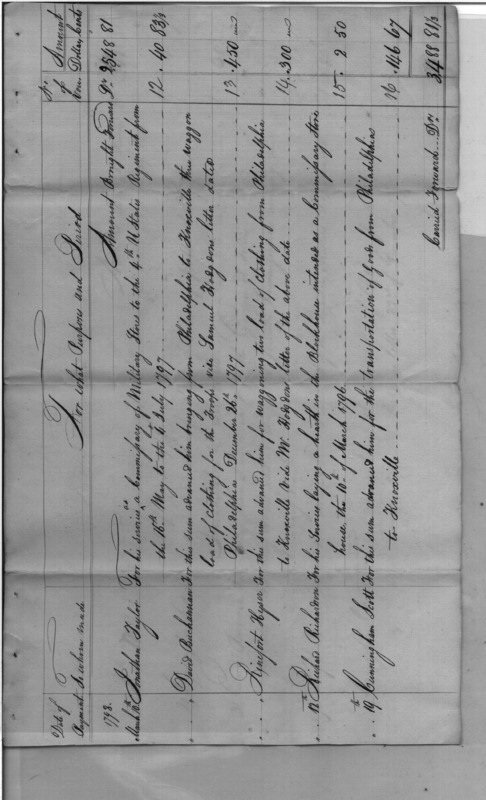 Date of Payment To whom made For what Purpose and Period No. of Vou. Amount Dollars Cents
1798. Amount Brought Forward Ds. 2548 81
March 10th Jonathan Taylor For his services as Commissary of Military Stores to the 4th U States Regiment from
the 16th May to the 6 July 1797 12 . 40 83 1/3
" " David Buchannan For this sum advanced him bringing from Philadelphia to Knoxville three waggon
load of clothing for the Troops vide Samuel Hodgdons letter dated
Philadelphia December 26th 1797 13 . 450 "
" " Hyser For this sum advanced him for waggoning two load of clothing from Philadelphia
to Knoxville vide Mr Hodgdons letter of the above date 14 . 300 "
" 15th Richard Richardson For his Services laying a hearth in the Blockhouse intended as a Commissary Store
house the 10th of March 1796 15 . 2 50
" 19th Cunningham Scott For this sum advanced him for the transportation of Goods from Philadelphia
to Knoxville 16 . 146 67
Carried Forward Drs 3488 81 1/3